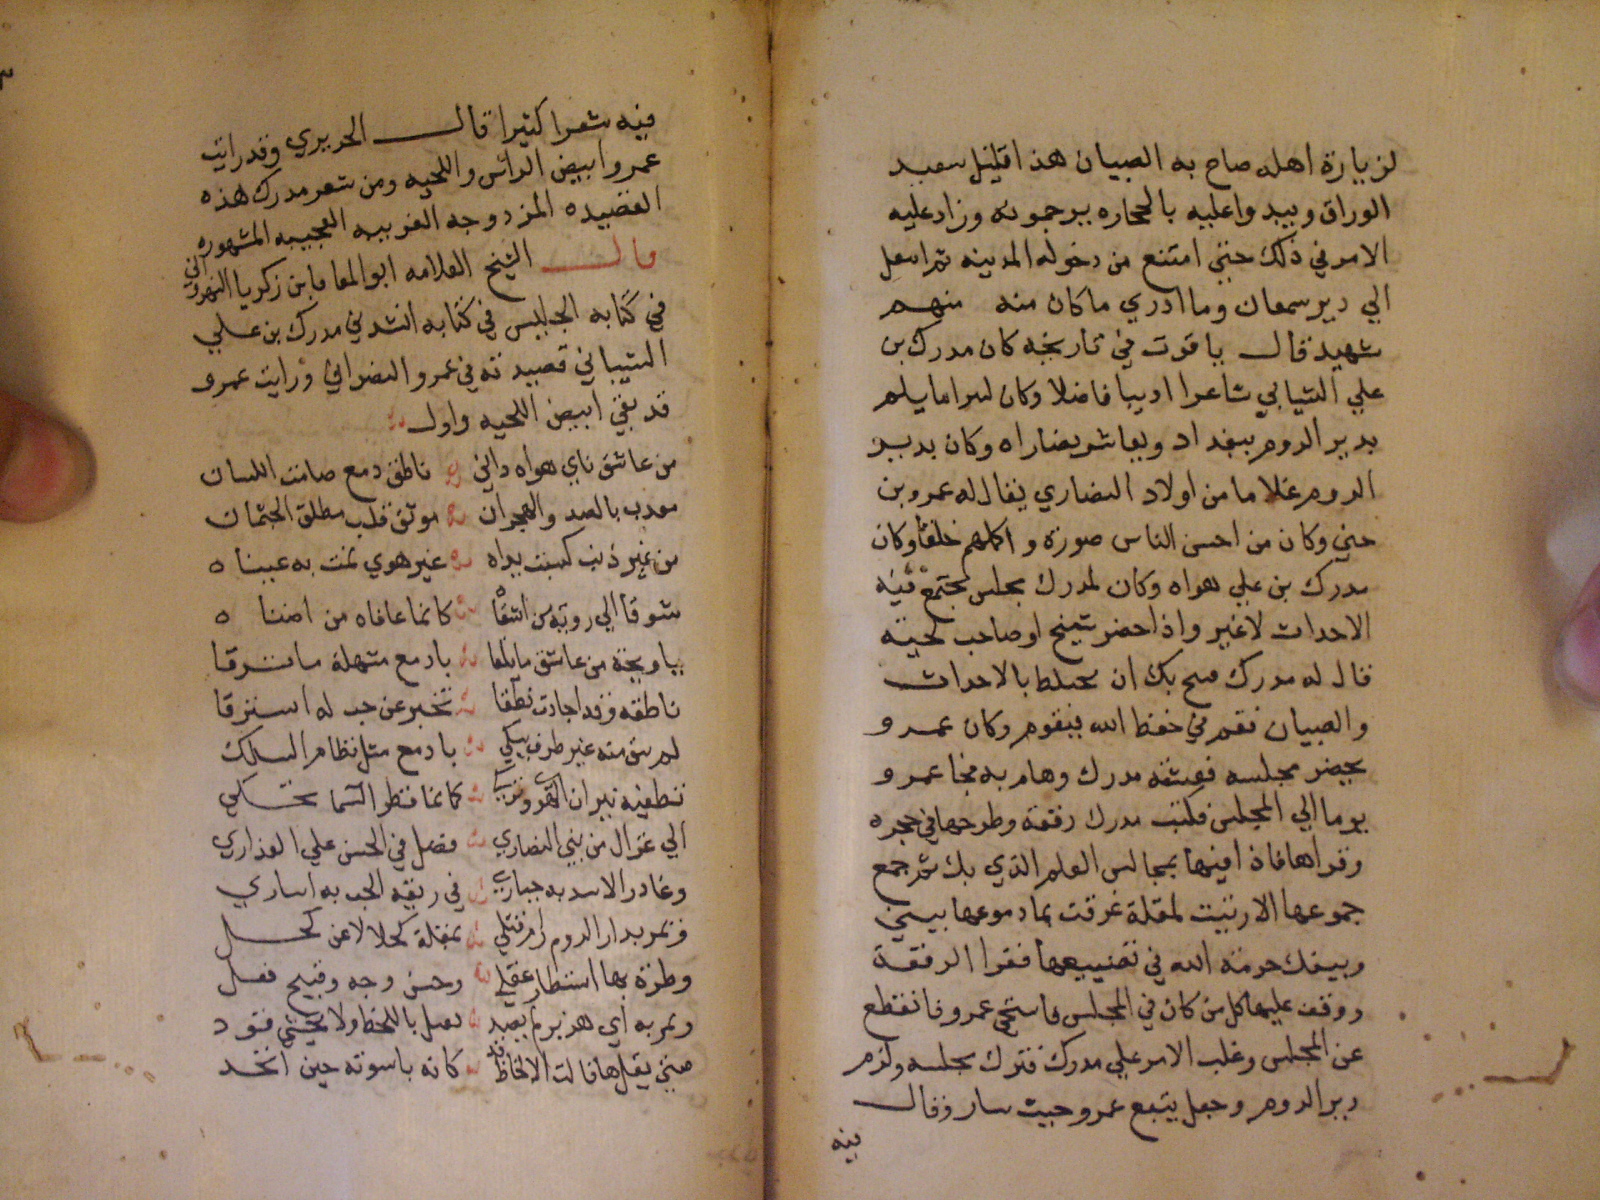 لزيارة اهله صاح به الصبيان هذا قليل سعيد
الوراق ويبدوا عليه بالحجاره يرجمونه وزاد عليه
الامر في ذلك حتي امتنع من دخوله المدينه ثم انتقل
الي دير سمعان وما ادري ما كان منه منهم
شهيد قال ياقوت في تاريخه كان مدرك بن
علي الشيباني شاعرا اديبا فاضلا وكان كثيرا ما يلم
بدير الروم ببغداد ويعاشر نصاراه وكان بدير
الروم غلاما من اولاد النصاري يقال له عمرو بن
حني وكان من احسن الناس صورة واكملهم خلقا وكان
مدرك بن علي يهواه وكان لمدرك مجلس تجتمع فيه
الاحداث لا غير واذا حضر شيخ او صاحب لحيته
قال له مدرك قبيح بك ان تختلط بالاحداث
والصبيان فقم في حفظ الله فيقوم وكان عمرو
يحضر مجلسه فعشقه مدرك وهام به فجا عمرو
يوما الي المجلس فكتب مدرك رقعة وطرحها في حجره
وقراها فاذا فيها بمجالس العلم الذي بك تم جمع
جموعها الا رثيت لمقلة غرقت بما دموعها بيني
وبينك حرمة الله في تضييعها فقرا الرقعة
ووقف عليها كل من كان في المجلس فاستحي عمرو فانقطع
عن المجلس وغلب الامر علي مدرك فترك مجلسه ولزم
دير الروم وجعل يتبع عمرو حيث سار وقال
فيه
فيه شعرا كثيرا قال الحريري وقد رايت
عمروا ابيض الرائس واللحيه ومن شعر مدرك هذه
القصيده المزدوجه الغريبه العجيبه المشهوره
قال الشيخ العلامه ابو المعافا بن زكريا النهرواني
في كتابه الجليس في كتابه انشدني مدرك بن علي
الشيباني قصيدته في عمرو النصراني ورايت عمرو
قد بقي ابيض اللحيه واول
من عاشق ناي هواه داني ناطق دمع صامت اللسان
معذب بالصد والهجران موثق قلب مطلق الجثمان
من غير ذنب كسبت يداه غير هوي نمت به عيناه
شوقا الي رويه من اشقاه كانما عافاه من اضناه
يا ويحه من عاشق ما يلقا بادمع منهلة ما ترقا
ناطقه وقد اجادت نطقا تخبر عن حب له استرقا
لم يبق منه غير طرف يبكي بادمع مثل نظام السلك
تطفيه نيران الهوي وتذكي كانما قطر السما تحكي
الي غزال من بني النصاري فضل في الحسن علي العذاري
وغادر الاسد به حياري في ربقه الحب به اساري
وتمر بدار الروم رام قتلي بمقلة كحلا لا عن كحل
وطرة بها استطار عقلي وحسن وجه وقبيح فعل
وتمر به اي هزبر لم يصيد يقتل باللحظ ولا يخشي قود
متي يقل ها قالت الالحاظ قد كانه ناسوته حين اتحد